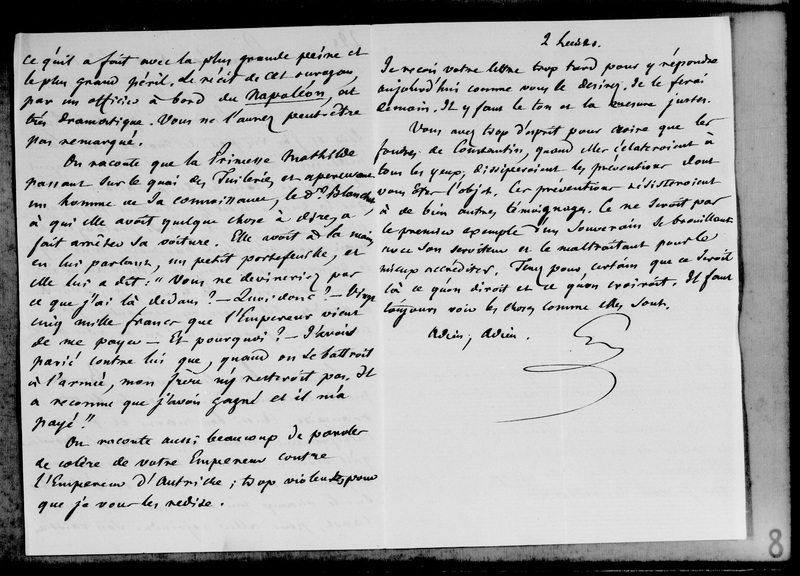 ce qu'il a fait avec la plus grande peine et
le plus grand péril. Le récit de cet ouragan,
par un officier à bord du Napoléon, est
très dramatique. Vous ne l'aurez peut-être
pas remarqué.
On raconte que la Princesse Mathilde
passant sur le quai des Tuileries et apercevant
un homme de sa connaissance, le Dr. Blanche,
à qui elle avoit quelque chose à dire, a
fait arrêter sa voiture. Elle avoit à la main,
en lui parlant, un petit portefeuille, et
elle lui a dit : "Vous ne devineriez pas
ce que j'ai là dedans ? — Quoi donc ? — Vingt
cinq mille francs que l'Empereur vient
de me payer — Et pourquoi ? — J'avois
parié contre lui que, quand on se battroit
à l'armée, mon frère n'y resteroit pas. Il
a reconnu que j'avois gagné et il m'a
payé."
On raconte aussi beaucoup de paroles
de colère de votre Empereur contre
l'Empereur d'Autriche ; trop violentes pour
que je vous les redise.
2 heures.
Je reçois votre lettre trop tard pour y répondre
aujourd'hui comme vous le desirez. Je le ferai
demain. Il y faut le ton et la mesure justes.
Vous avez trop d'esprit pour croire que les
foudres de Constantin, quand elles éclateroient à
tous les yeux, dissiperoient les préventions dont
vous êtes l'objet. Les préventions résisteroient
à de bien autres témoignages. Ce ne seroit pas
le premier exemple d'un souverain se brouillant
avec son serviteur et le maltraitant pour le
mieux accréditer. Tenez pour certain que ce seroit
là ce qu'on diroit et ce qu'on croiroit. Il faut
toujours voir les choses comme elles sont.
Adieu, Adieu.
8